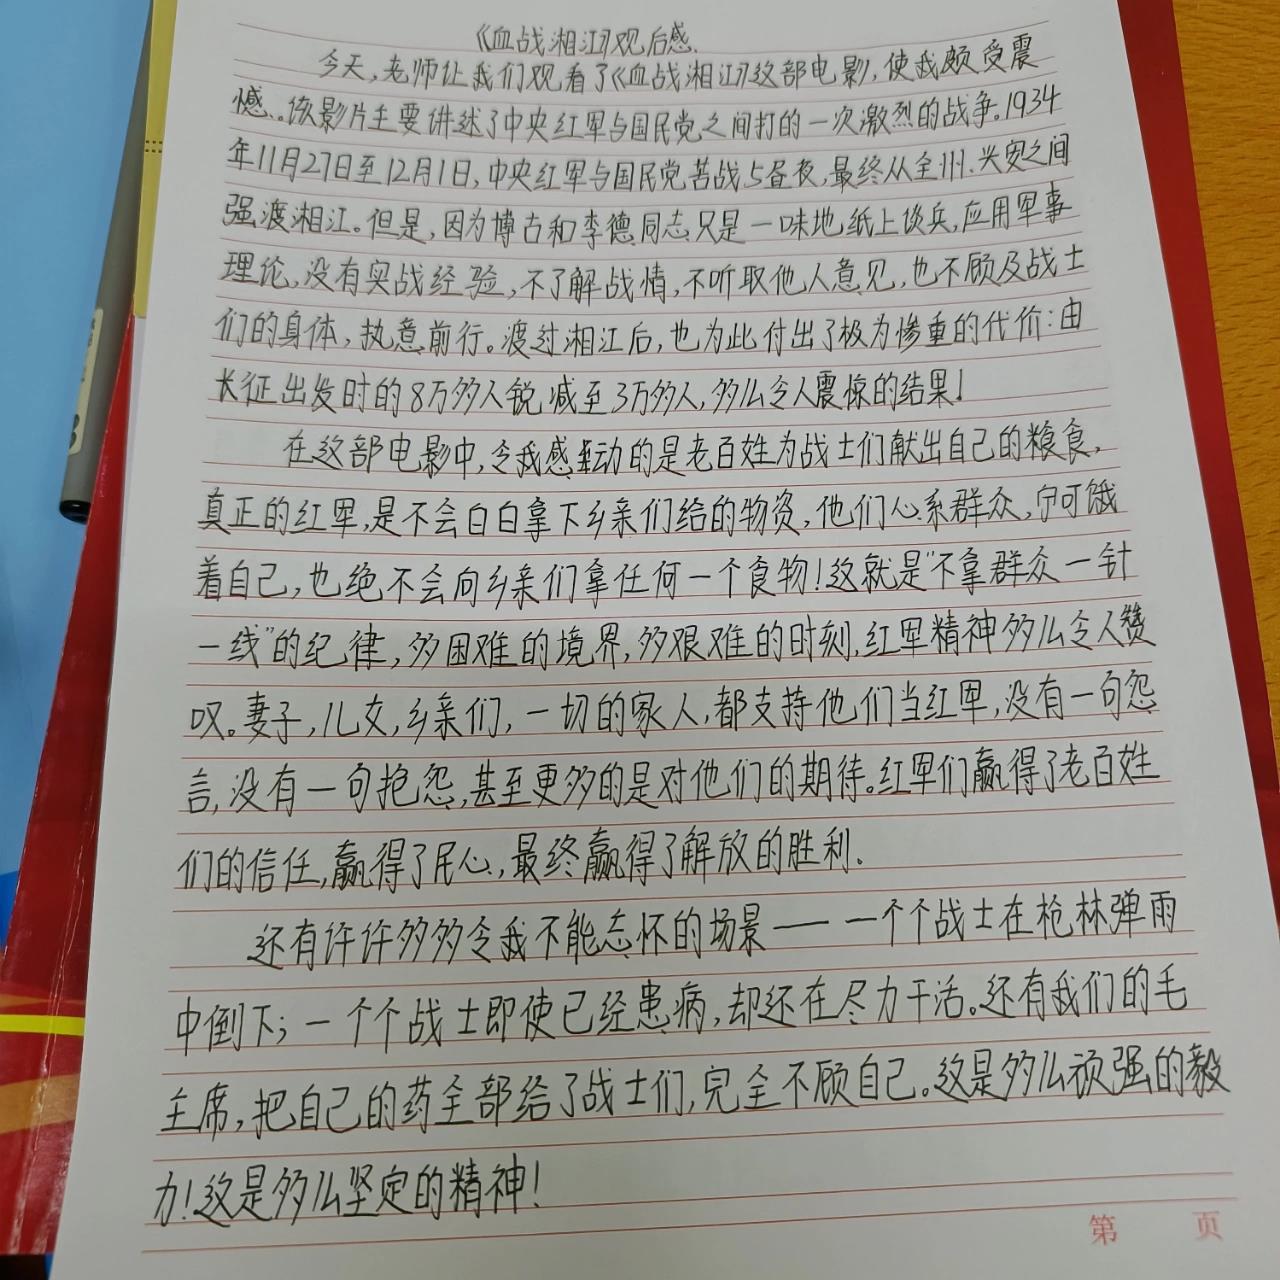 《血战湘江》观后感
今天,老师让我们观看了《血战湘江》这部电影,使我颇受震
憾。该影片主要讲述了中央红军与国民党之间打的一次激烈的战争。1934
年11月27日至12月1日,中央红军与国民党苦战5昼夜,最终从全州、兴安之间
强渡湘江。但是,因为博古和李德同志只是一味地纸上谈兵,应用军事
理论,没有实战经验,不了解战情,不听取他人意见,也不顾及战士
们的身体,执意前行。渡过湘江后,也为此付出了极为惨重的代价:由
长征出发时的8万多人锐减至3万多人,多么令人震惊的结果!
在这部电影中,令我感动的是老百姓为战士们献出自己的粮食,
真正的红军,是不会白白拿下乡亲们给的物资,他们心系群众,宁可饿
着自己,也绝不会向乡亲们拿任何一个食物!这就是“不拿群众一针
一线”的纪律,多困难的境界,多艰难的时刻,红军精神多么令人赞
叹。妻子,儿女,乡亲们,一切的家人,都支持他们当红军,没有一句怨
言,没有一句抱怨,甚至更多的是对他们的期待。红军们赢得了老百姓
们的信任,赢得了民心,最终赢得了解放的胜利.
还有许许多多令我不能忘怀的场景——一个个战士在枪林弹雨
中倒下;一个个战士即使已经患病,却还在尽力干活。还有我们的毛
主席,把自己的药全部给了战士们,完全不顾自己。这是多么顽强的毅
力!这是多么坚定的精神!
第 页